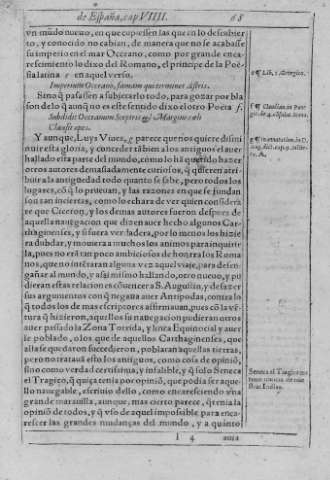 de España, cap. VIIII. 68
vn mũdo nueuo, en que cupiessen las que en lo descubier
to, y conocido no cabian, de manera que no se acabasse
su imperio en el mar Occeano, como por grande enca-
rescimiento lo dixo del Romano, el principe de la Poë-
sia latina e en aquel verso.
Imperium Occeano, famam qui terminet Astris.
Sino q̃ passassen a subjecarlo todo, para gozar por bla
son delo q̃ aunq̃ no es este sentido dixo el otro Poeta f.
Subdidit Oceanum Sceptris & Margine cæli
Clausit opes.
Y aunque, Luys Viues, g parece que nos quiere dismi
nuir esta gloria, y conceder tãbien a los antiguos el auer
hallado esta parte del mundo, como lo hã querido hazer
otros autores demasiadamente curiosos, q̃ quieren atri-
buir a la antiguedad todo quanto se sabe, pero todos los
lugares, cõ q̃ lo prueuan, y las razones en que se fundan
son tan inciertas, como lo echara de ver quien considera
re que Ciceron, y los demas autores fueron despues de
aquella nauegacion que dizen auer hecho algunos Car-
thaginenses, y si fuera verdadera, por lo menos los hizie
ra dubdar, y mouiera a muchos los animos para inquirir
la, pues no erã tan poco ambiciosos de honra los Roma
nos, que no intentaran alguna vez aquel viaje, para desen-
gañar al mundo, y assi mismo hallando, otro nueuo, y pu
dieran estas relaciones cõuencer a S. Augustin, y deshazer
sus argumentos con q̃ negaua auer Antipodas, contra lo
q̃ todos los de mas escriptores affirmauan, pues cõ la vẽ-
tura q̃ hizieron, aquellos su nauegacion pudieran otros
auer passado la Zona Torrida, y linea Equinocial y auer
se poblado, o los que de aquellos Carthaginenses, que
alla se quedaron succedieron, poblaran aquellas tierras,
pero no trataua esto los antiguos, como cosa de opiniõ,
sino como verdad certissima, y infalible, y q̃ solo Seneca
el Tragico, q̃ quiça tenia por opiniõ, que podia ser aque-
llo nauegable, escriuio dello, como encaresciendo vna
grande marauilla, aunque, mas cierto parece, q̃ tenia la
opiniõ de todos, y q̃ vso de aquel impossible para enca-
rescer las grandes mudanças del mundo, y a quinto
I 4 auia
e ¶ Lib. 1. Æneidos.
f ¶ Claudian. in
g ¶
Seneca el Tragico